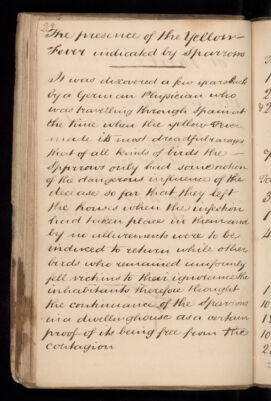 The presence of the Yellow-
Fever indicated by Sparrows
It was discovered a few years back
by a German Physician who
was travelling through Spain at
the time when the yellow Fever
made its most dreadful ravages
that of all kinds of birds the
Sparrows only had some notion
of the dangerous influence of the
decease so far that they left
the houses when the infection
had taken place in them and
by no allurements were to be
induced to return while other
birds who remained uniformly
fell victims to their ignorance the
inhabitants therefore thought
the continuance of the Sparrows
in a dwelling house as a certain
proof of its being free from the
contagion